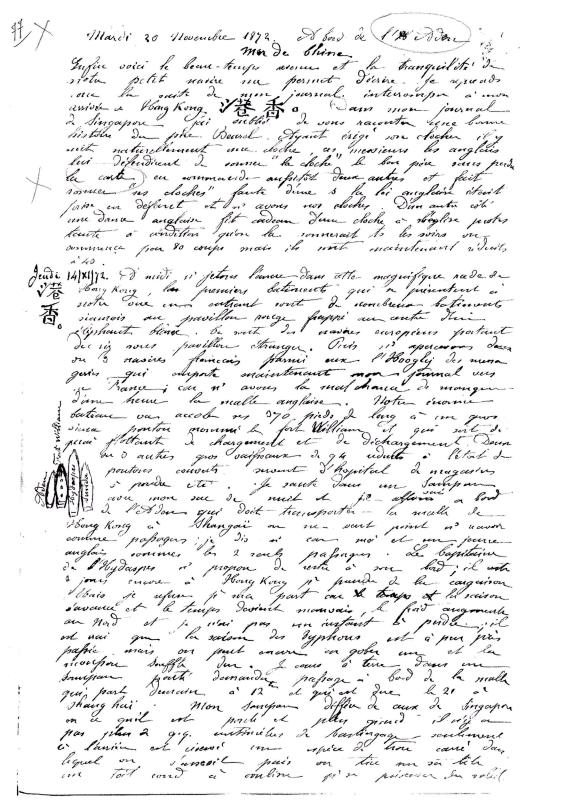 97
Mardi 20 Novembre 1872. A bord de l'Aden
Mer de Chine
Enfin voici le beau temps venu et la tranquilité de
notre petit navire me permet d'écrire. Je reprends
la suite de mon journal interrompu à mon
arrivée à Hong Kong. 港香。 Dans mon journal
de Singapore j'ai oublié de vous raconter une bonne
histoire du père Ayant érigé son clocher il y
mit naturellement une cloche, messieurs les anglais
lui défendirent de sonner "la cloche" le bon père sans perdre
la carte en commande aussitôt deux autres et fait
sonner "ses cloches" faute dime à la loi anglaise était
et si avons nos cloches. D'un autre côté
une dame anglaise fit cadeau d'une cloche à l'église protes
tante à condition qu'on la sonnerait ts les soirs on
commença par 80 coups mais ils sont maintenant réduits
à 40.
Jeudi 14/XI/72. A midi, je jetons l'ancre dans cette magnifique rade de
港香。
Hong Kong, les premiers batiments qui se présentent à
notre vue en entrant sont de nombreux batiments
siamois au pavillon rouge frappé au centre d'un
éléphant blanc. Ce sont des navires européens portant
pavillon étranger. Puis n' apercevons deux
ou 3 navires français parmi eux l'Hoogly des messa
geries qui emporte maintenant mon journal vers
la France; car n' avons la malchance de manquer
d'une heure la malle anglaise. Notre énorme
bateau va accoster ses 370 pieds de long à un gros
vieux ponton nommé le fort William et qui sert de
quai flottant de chargement et de déchargement. Deux
ou 3 autres gros vaisseaux de 94 réduits à l'état de
pontons couverts servent d'hopital de magasins
à poudre etc. Je saute dans un Sampan
avec mon sac de nuit et je à bord
de l'Aden qui doit transporter la malle de
Hong Kong à Shangai on ne sait point n' avoir
comme passagers; je dis n' car moi et un jeune
anglais sommes les 2 seuls passagers. Le Capitaine
de l'Hydaspes n' propose de rester à son bord; il reste
2 jours encore à Hong Kong pr prendre de la cargaison
Mais je refuse je pars car la saison
s'avance et le temps devient mauvais, le froid augmente
au Nord et je n'ai pas un instant à perdre; il
est vrai que la saison des typhons est à peu près
passée mais on peut encore en gober un et la
mousson souffle dur. Je cours à terre dans un
sampan demander passage à bord de la malle
qui part demain à 12 et qui est due le 21 à
Shang hai. Mon sampan diffère de ceux de Singapore
en ce quil est ponté et plus grand il n'y a
pas plus de
à l'arrière est creusé une espèce de trou carré dans
lequel on s'assoit puis on tire sur sa tête
un toit rond à coulisse pr se préserver du soleil
Aden
Hydaspes
Fort William